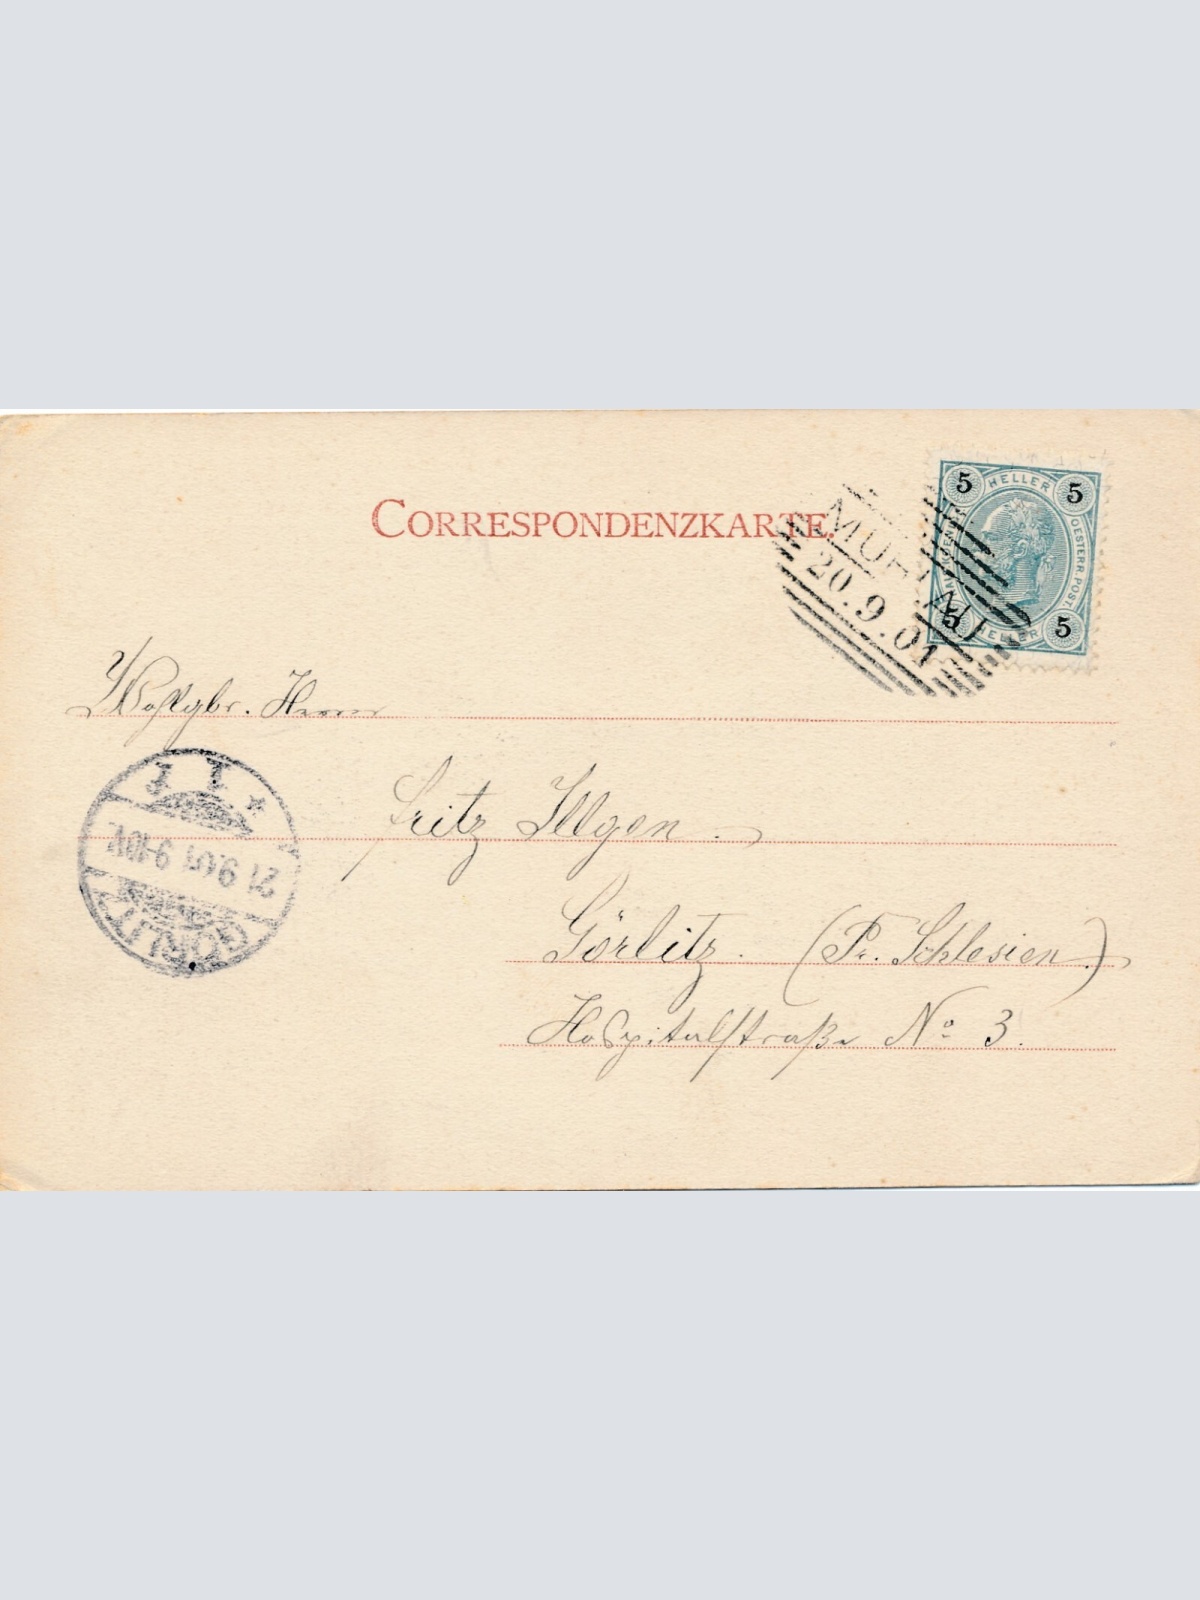 CORRESPONDENZKARTE.
5 HELLER 5
OESTERR. POST.
5 HELLER 5
20.9.01
Wohlgbr. Herrn
Fritz Illgen.
Görlitz. (Pr. Schlesien.)
Hospitalstraße No 3.
21 9.01 9-10V.
GÖRLITZ